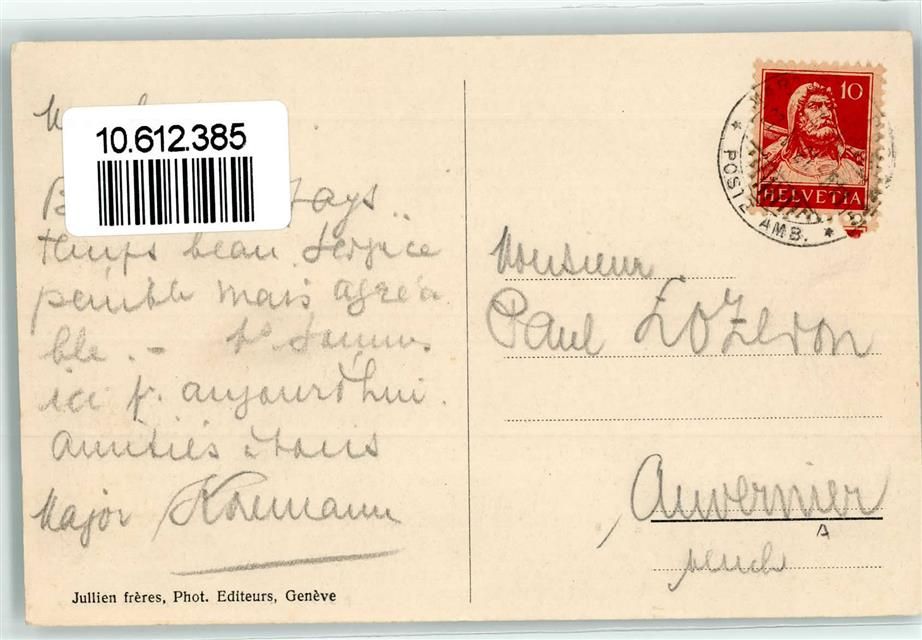 10.612.385
pays
temps beau service
pénible mais agréa
ble. - sommes
ici p. aujourd'hui.
Amitiés à tous
Major
Jullien frères, Phot. Editeurs, Genève
10
HELVETIA
POSTE AMB.
Monsieur
Paul
Auvernier
A